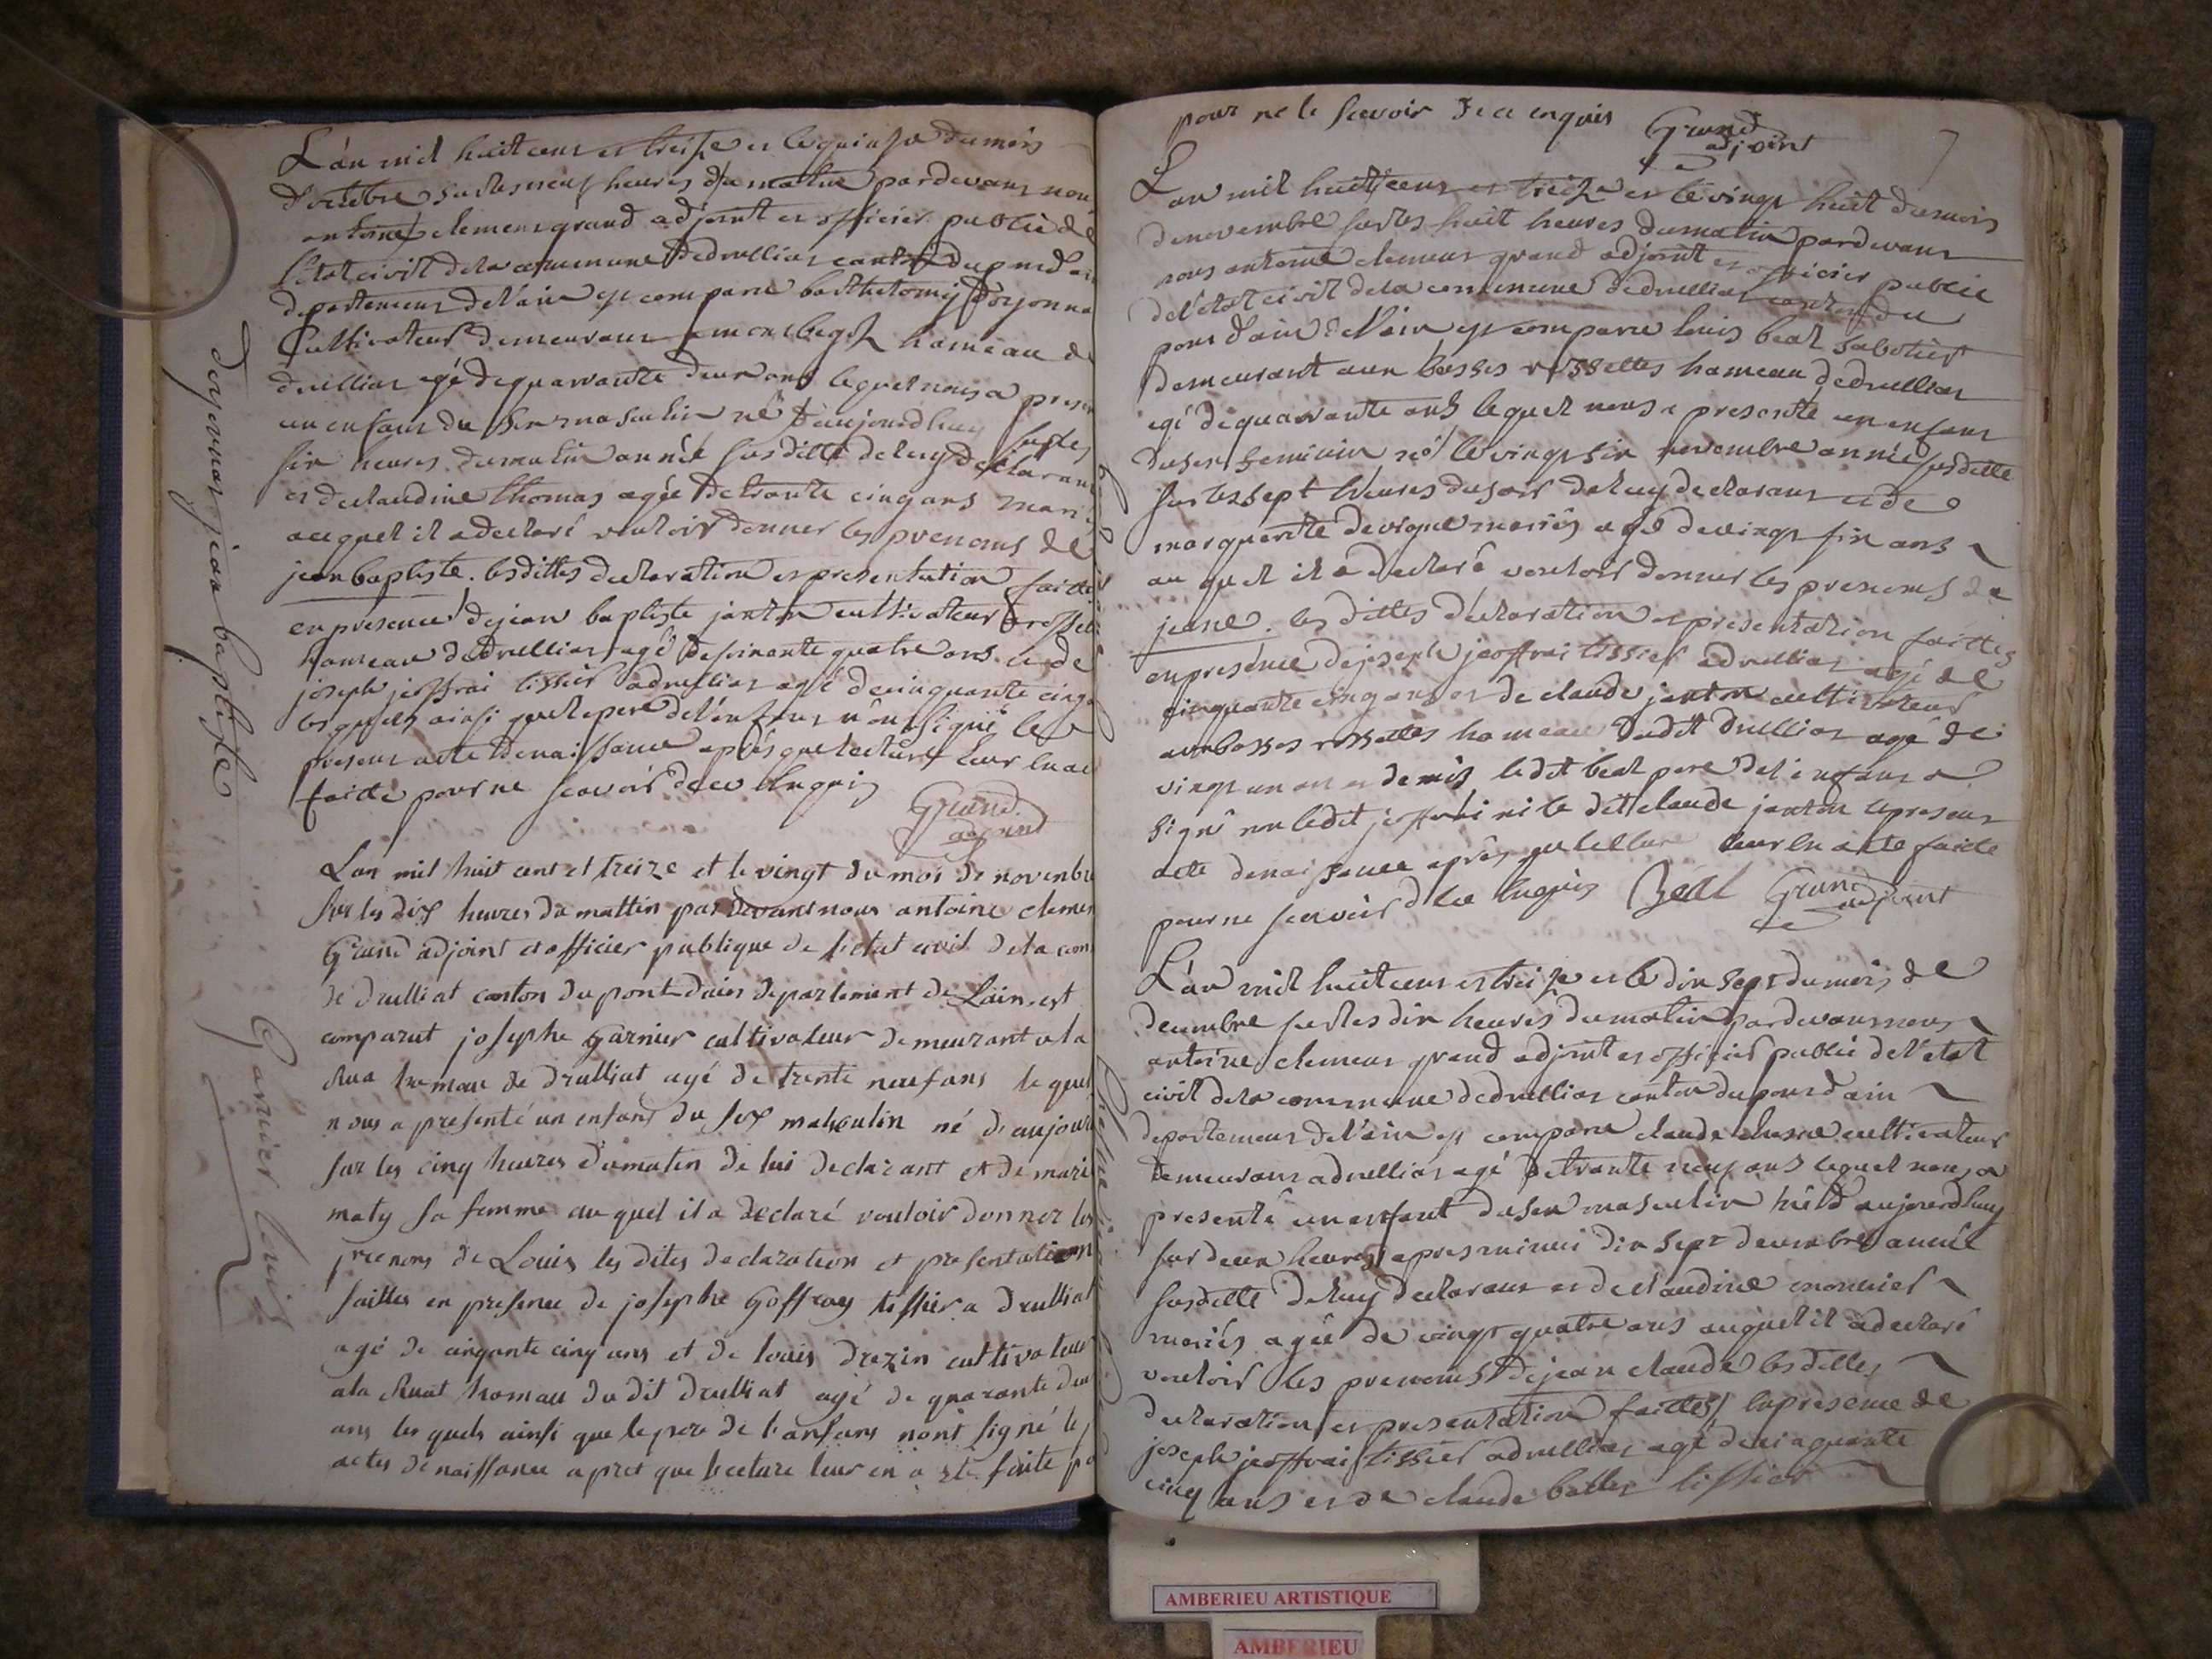 L'an mil huit cens et treize et le quinze du mois
d'octobre sur les neuf heures du matin pardevans nous
antoine clemens grand adjoint et officier public de
l'etat civil de la commune de drullias canton du pondain
departemens de l'ain est comparu barthelomy Dorjonna
Cultivateur demeurans hameau de
drullias agé de quarante deux ans lequel nous a presen
un enfans du sex masculin né d'aujourdhuy sur les
six heures du matin année susditte de luy declarans
et de claudine thomas agée de trante cinq ans mari
auquel il a declaré vouloir donner les prenoms de
jean baptiste. les dittes declaration et presentation faittes
en presence de jean baptiste janton cultivateur
hameau de drullias agé de soixante quatre ans. et de
joseph jeoffrai tissier a drullias agé de cinquante cinq
lesquels ainsi que le pere de l'enfans n'ont signé le
presens acte de naissance après que lecture leur en a
faitte pour ne scavoir de ce Enquis Grand
adjoint
L'an mil huit cent et treize et le vingt du mois de novembre
sur les dix heures du mattin pardevant nous antoine clemen
Grand adjoint et officier publique de l'etat civil de la com
de drulliat canton du pont dain departement de Lain est
comparut josephe Garnier cultivateur demeurant a la
Rua hamau de drulliat agé de trente neuf ans le quel
nous a presenté un enfant du sex masculin né d'aujour
sur les cinq heures du matin de lui declarant et de marie
maty sa femme au quel il a declaré vouloir donner les
prenoms de Louis les dites declaration et presentation
faittes en presence de josephe Goffray tissier a drulliat
agé de cinqante cinq ans et de louis drezin cultivateur
a la Ruat hamau du dit drulliat agé de quarante deu
ans les quels ainsi que le pere de l'anfans nont signé le p
actes de naissance apret que lecture leur en a été faite po
dorjonnas jean baptiste
Garnier louis
pour ne le scavoir de ce enquis Grand
adjoint
7
L'an mil huit cens et treize et le vingt huit du mois
de novembre sur les huit heures du matin pardevans
nous antoine clemens grand adjoint et officier public
de l'etat civil de la commune de drullias canton du
pons d'ain de l'ain est comparu louis beal sabotier
demeurant aux basses rossettes hameau de drullias
agé de quarante ans lequel nous a presenté un enfans
du sex feminin né le vingt six novembre année susditte
sur les sept heures du soir de luy declarans et de
marguerite devigne mariés agé de vingt six ans
au quel il a declaré vouloir donner les prenoms de
jeane. les dittes declaration et présentation faittes
en présence de joseph jeoffrai tissier a drullias agé de
cinquante cinq ans et de claude janton cultivateur
aux basses rossettes hameau dudit drullias agé de
vingt un an et demis le dit beal pere de l'enfans a
signé non ledit jeoffrai ni le dit claude janton le presens
acte de naissance après que lecture leur en a ete faitte
pour ne scavoir de ce Enquis Béal Grand
adjoint
L'an mil huit cens et treize et le dix sept du mois de
decembre sur les dix heures du matin pardevans nous
antoine clemens grand adjoint et officier public de l'etat
civil de la commune de drullias canton du pons d'ain
departemens de l'ain est comparu claude cultivateur
demeurans a drullias agé de trante neuf ans lequel nous a
presenté un enfant du sex masculin né d'aujourdhuy
sur deux heures apres minui dix sept decembre année
susditte de luy declarans et de claudine monnier
mariés agée de vingt quatre ans auquel il a declaré
vouloir les prenoms de jean claude les dittes
declaration et presentation faittes en presence de
joseph jeoffrai tissier a drullias agé de cinquante
cinq ans et de claude tissier
AMBERIEU ARTISTIQUE
AMBERIEU